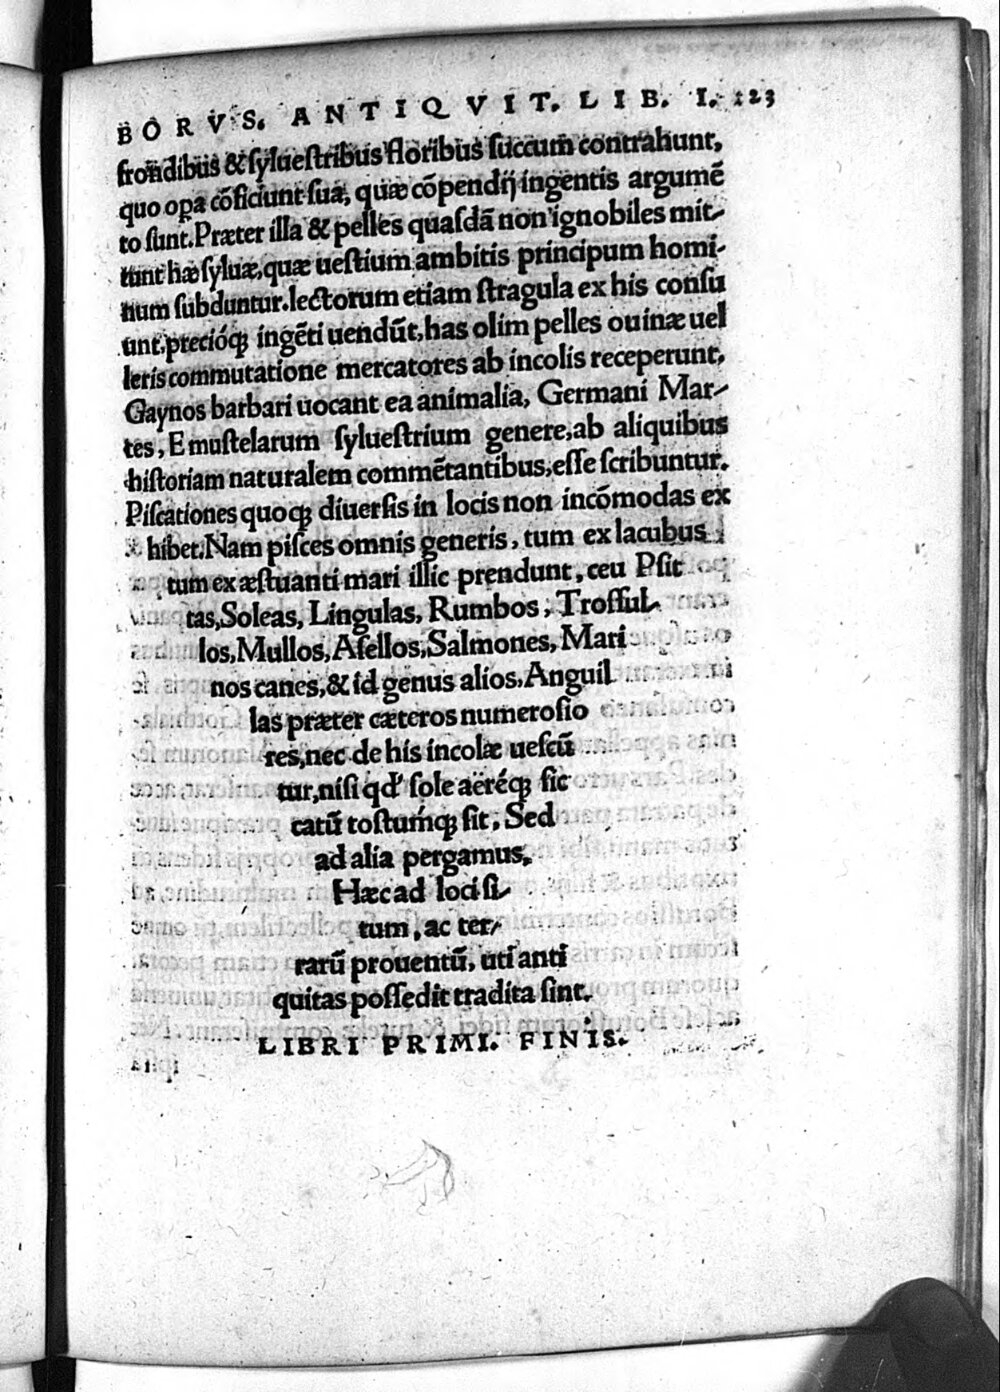 BORVS. ANTIQVIT. LIB. I. 123
frondibus & sylueſtribus floribus ſuccum contrahunt,
quo opa cõficiunt ſua, quæ cõpendij ingentis argumẽ
to ſunt. Præter illa & pelles quaſdã non ignobiles mit-
tunt hæ ſyluæ, quæ ueſtium ambitis principum homi-
num ſubduntur. lectorum etiam ſtragula ex his conſu
unt, precióq; ingẽti uendũt, has olim pelles ouinæ uel
leris commutatione mercatores ab incolis receperunt,
Gaynos barbari uocant ea animalia, Germani Mar-
tes, E muſtelarum ſylueſtrium genere, ab aliquibus
hiſtoriam naturalem commẽtantibus, eſſe ſcribuntur.
Piſcationes quoq; diuerſis in locis non incõmodas ex
hibet. Nam piſces omnis generis, tum ex lacubus
tum ex æſtuanti mari illic prendunt, ceu Pſit
tas, Soleas, Lingulas, Rumbos, Troſſul-
los, Mullos, Aſellos, Salmones, Mari
nos canes, & id genus alios. Anguil
las præter cæteros numeroſio
res, nec de his incolæ ueſcũ
tur, niſi qđ ſole aëréq; ſic
catũ toſtumq; ſit, Sed
ad alia pergamus.
Hæc ad loci ſi-
tum, ac ter-
rarũ prouentũ, uti anti
quitas poſſedit tradita ſint.
LIBRI PRIMI. FINIS.